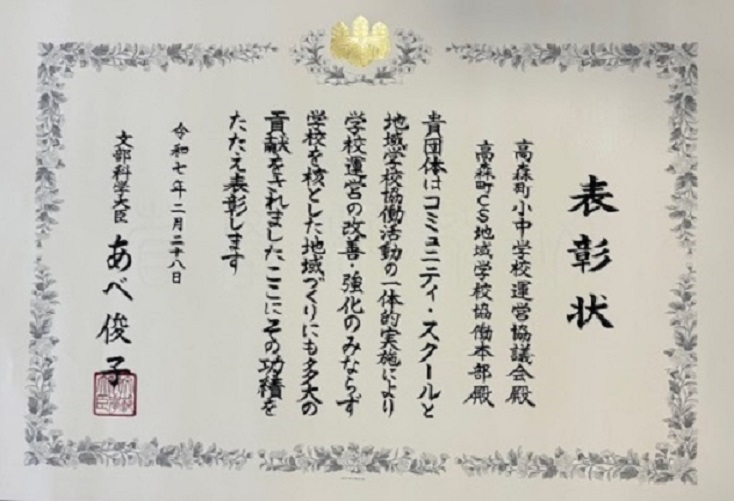 表彰状
高森町小中学校運営協議会殿
高森町CS地域学校協働本部殿
貴団体はコミュニティ・スクールと
地域学校協働活動の一体的実施により
学校運営の改善・強化のみならず
学校を核とした地域づくりにも多大の
貢献をされましたここにその功績を
たたえ表彰します
令和七年二月二十八日
文部科学大臣 あべ俊子